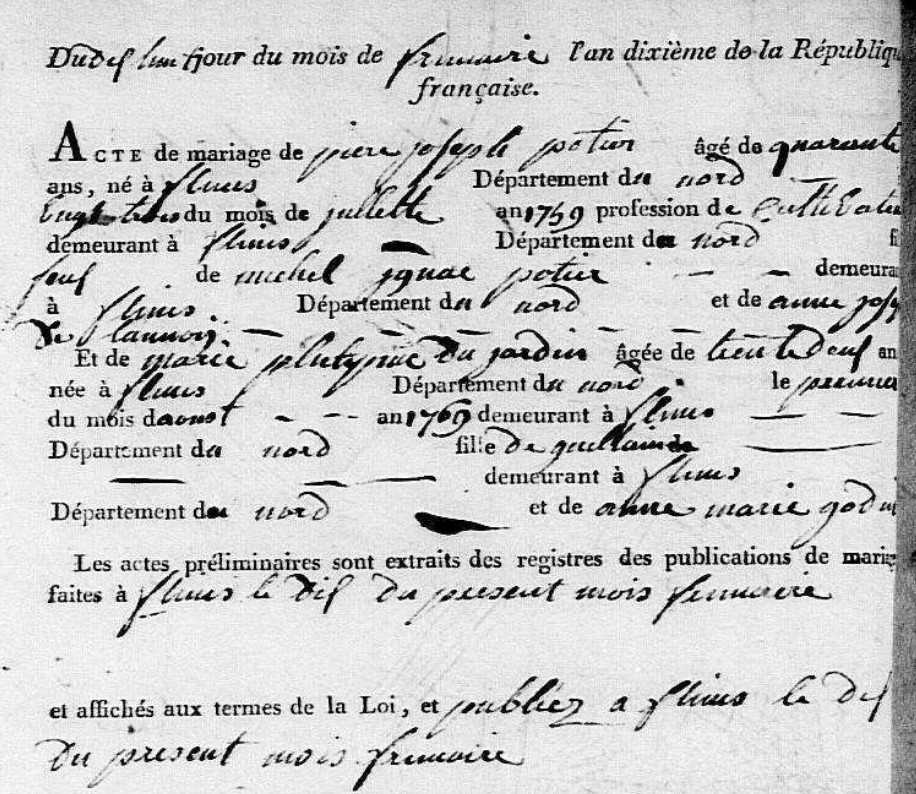 Du dix huit jour du mois de frimaire l'an dixième de la République
française.
ACTE de mariage de piere joseph potier âgé de quarante
ans, né à flines Département du nord
Vingt trois du mois de juillette an 1759 profession de Cultivateur
demeurant à flines Département du nord fi
de michel ignac potier demeura
à flines Département du nord et de anne jose
De lannoy
Et de marie du jardin âgée de trente deux an
née à flines Département du nord le premier
du mois daoust an 1769 demeurant à flines
Département du nord fille de guillain
demeurant à flines
Département du nord et de anne marie godin
Les actes préliminaires sont extraits des registres des publications de mariag
faites à flines le dix du present mois frimaire
et affichés aux termes de la Loi, et publiez a flines le dix
Du present mois frimaire